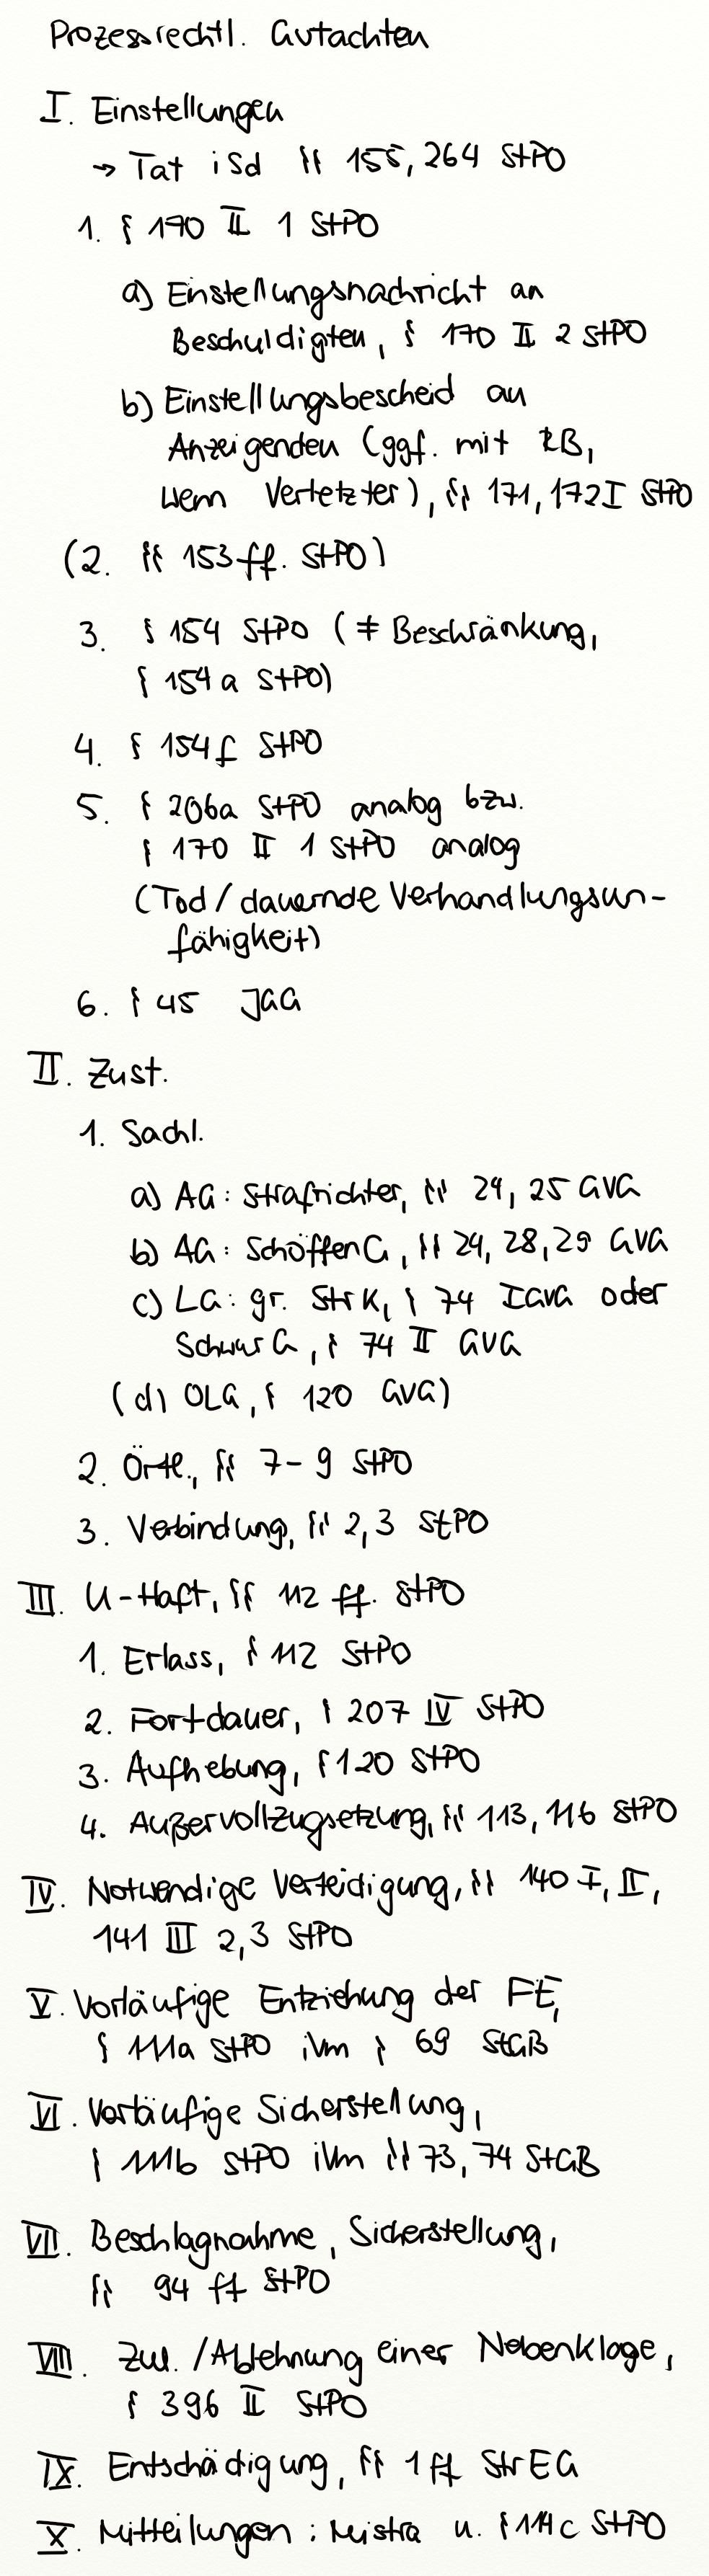 Prozessrechtl. Gutachten
I. Einstellungen
→ Tat iSd §§ 155, 264 StPO
1. § 170 II 1 StPO
a) Einstellungsnachricht an
Beschuldigten, § 170 II 2 StPO
b) Einstellungsbescheid an
Anzeigenden (ggf. mit RB,
wenn Verletzter), §§ 171, 172 I StPO
(2. §§ 153 ff. StPO)
3. § 154 StPO (≠ Beschränkung,
§ 154 a StPO)
4. § 154 f StPO
5. § 206a StPO analog bzw.
§ 170 II 1 StPO analog
(Tod / dauernde Verhandlungsun-
fähigkeit)
6. § 45 JGG
II. Zust.
1. Sachl.
a) AG: Strafrichter, §§ 24, 25 GVG
b) AG: SchöffenG, §§ 24, 28, 29 GVG
c) LG: gr. StrK, § 74 I GVG oder
SchwurG, § 74 II GVG
(d) OLG, § 120 GVG)
2. Örtl., §§ 7-9 StPO
3. Verbindung, §§ 2,3 StPO
III. U-Haft, §§ 112 ff. StPO
1. Erlass, § 112 StPO
2. Fortdauer, § 207 IV StPO
3. Aufhebung, § 120 StPO
4. Außervollzugsetzung, §§ 113, 116 StPO
IV. Notwendige Verteidigung, §§ 140 I, II,
141 III 2,3 StPO
V. Vorläufige Entziehung der FE,
§ 111a StPO iVm § 69 StGB
VI. Vorläufige Sicherstellung,
§ 111b StPO iVm §§ 73, 74 StGB
VII. Beschlagnahme, Sicherstellung,
§§ 94 ff StPO
VIII. Zul. / Ablehnung einer Nebenklage,
§ 396 II StPO
IX. Entschädigung, §§ 1 ff StrEG
X. Mitteilungen: Mistra u. § 114c StPO